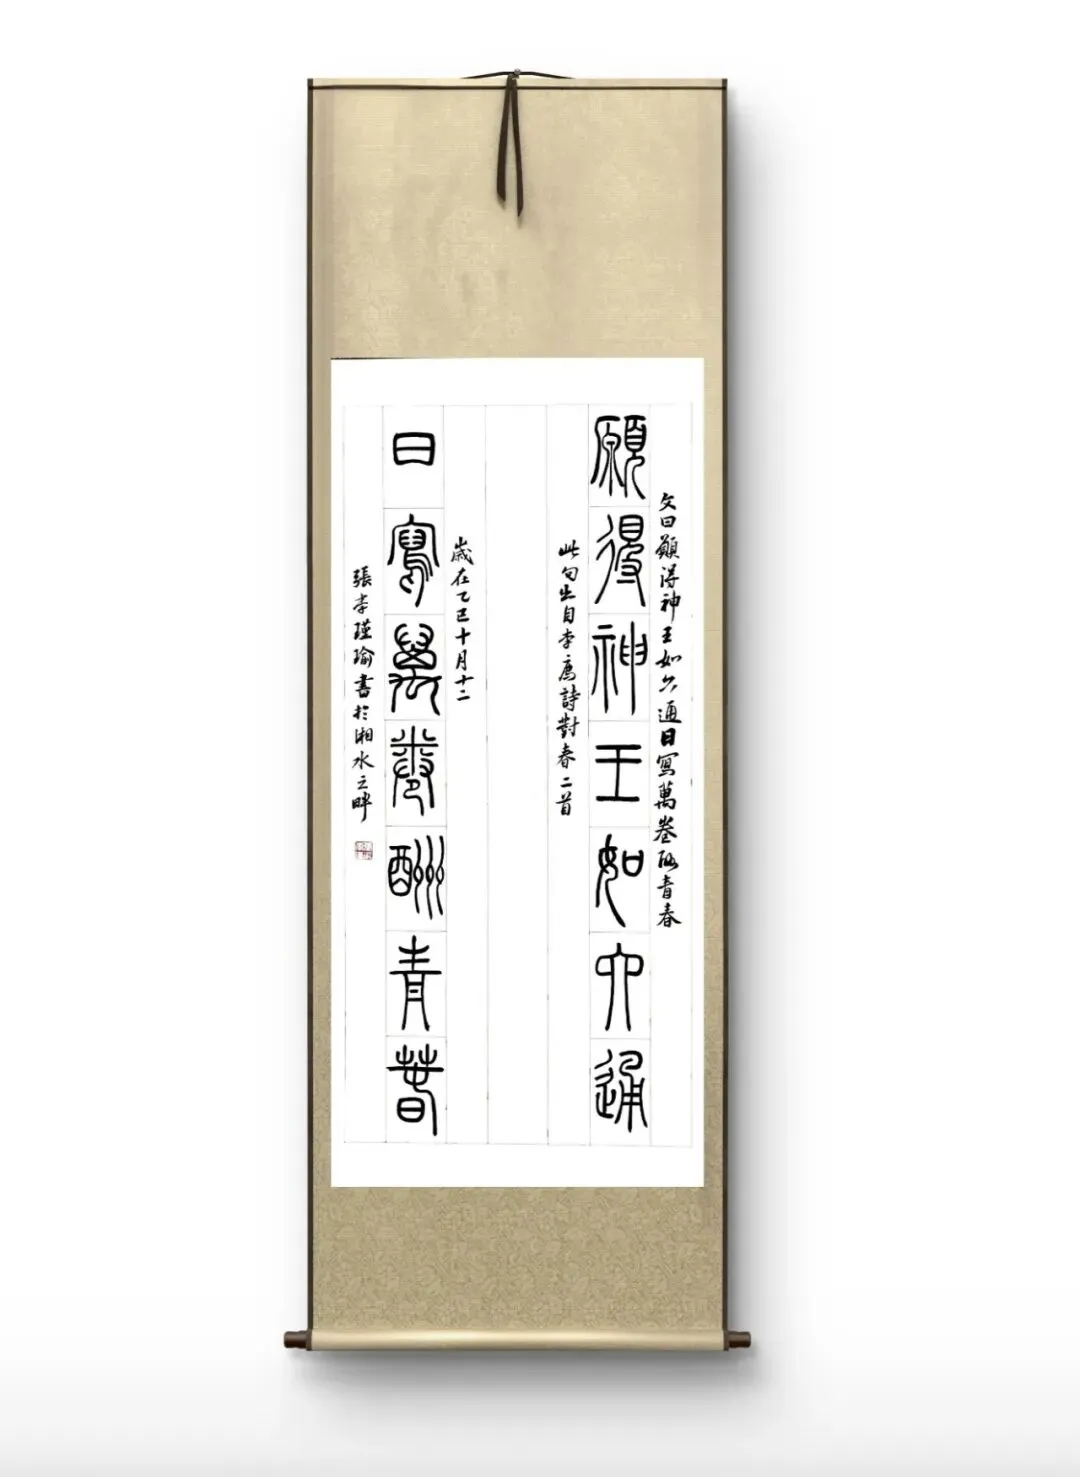 文曰願得神王如六通日寫萬卷酬青春
願得神王如六通
此句出自李廌詩對春二首
歲在乙巳十月十二
日寫萬卷酬青春
張李瑾瑜書於湘水之畔